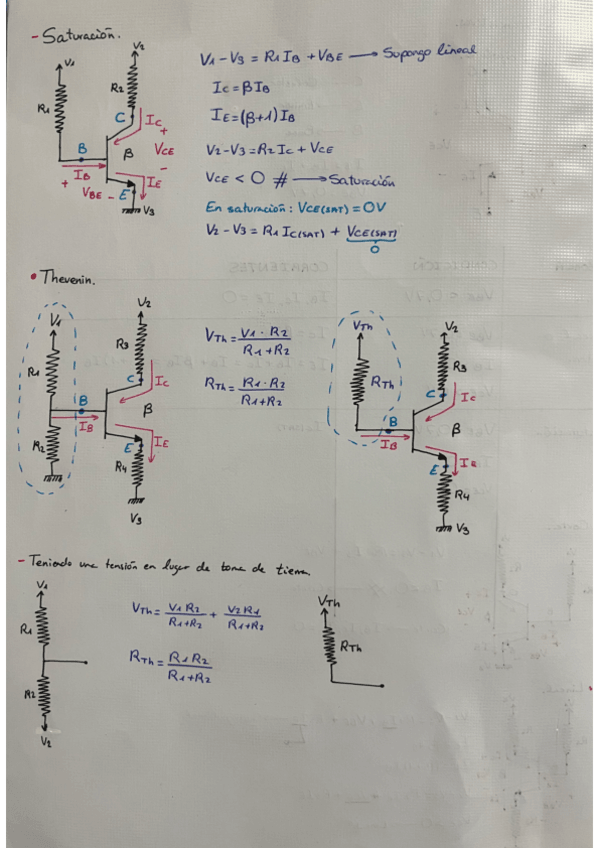 - Saturación.
V1
V2
R1
R2
C
IC
+
VCE
-
B
β
IB
+ VBE -
E
IE
V3
V1 - V3 = R1 IB + VBE → Supongo lineal
IC = β IB
IE = (β+1) IB
V2 - V3 = R2 IC + VCE
VCE < 0 # → Saturación
En saturación: VCE(SAT) = 0V
V2 - V3 = R1 IC(SAT) + VCE(SAT)
0
• Thevenin.
V1
V2
R1
R3
C
IC
B
β
IB
R2
E
IE
R4
V3
VTh = V1 · R2 / R1 + R2
RTh = R1 · R2 / R1 + R2
VTh
V2
R3
RTh
C
IC
B
β
IB
E
IE
R4
V3
- Teniendo una tensión en lugar de toma de tierra.
V1
R1
R2
V2
VTh = V1 R2 / R1+R2 + V2 R1 / R1+R2
RTh = R1 R2 / R1+R2
VTh
RTh